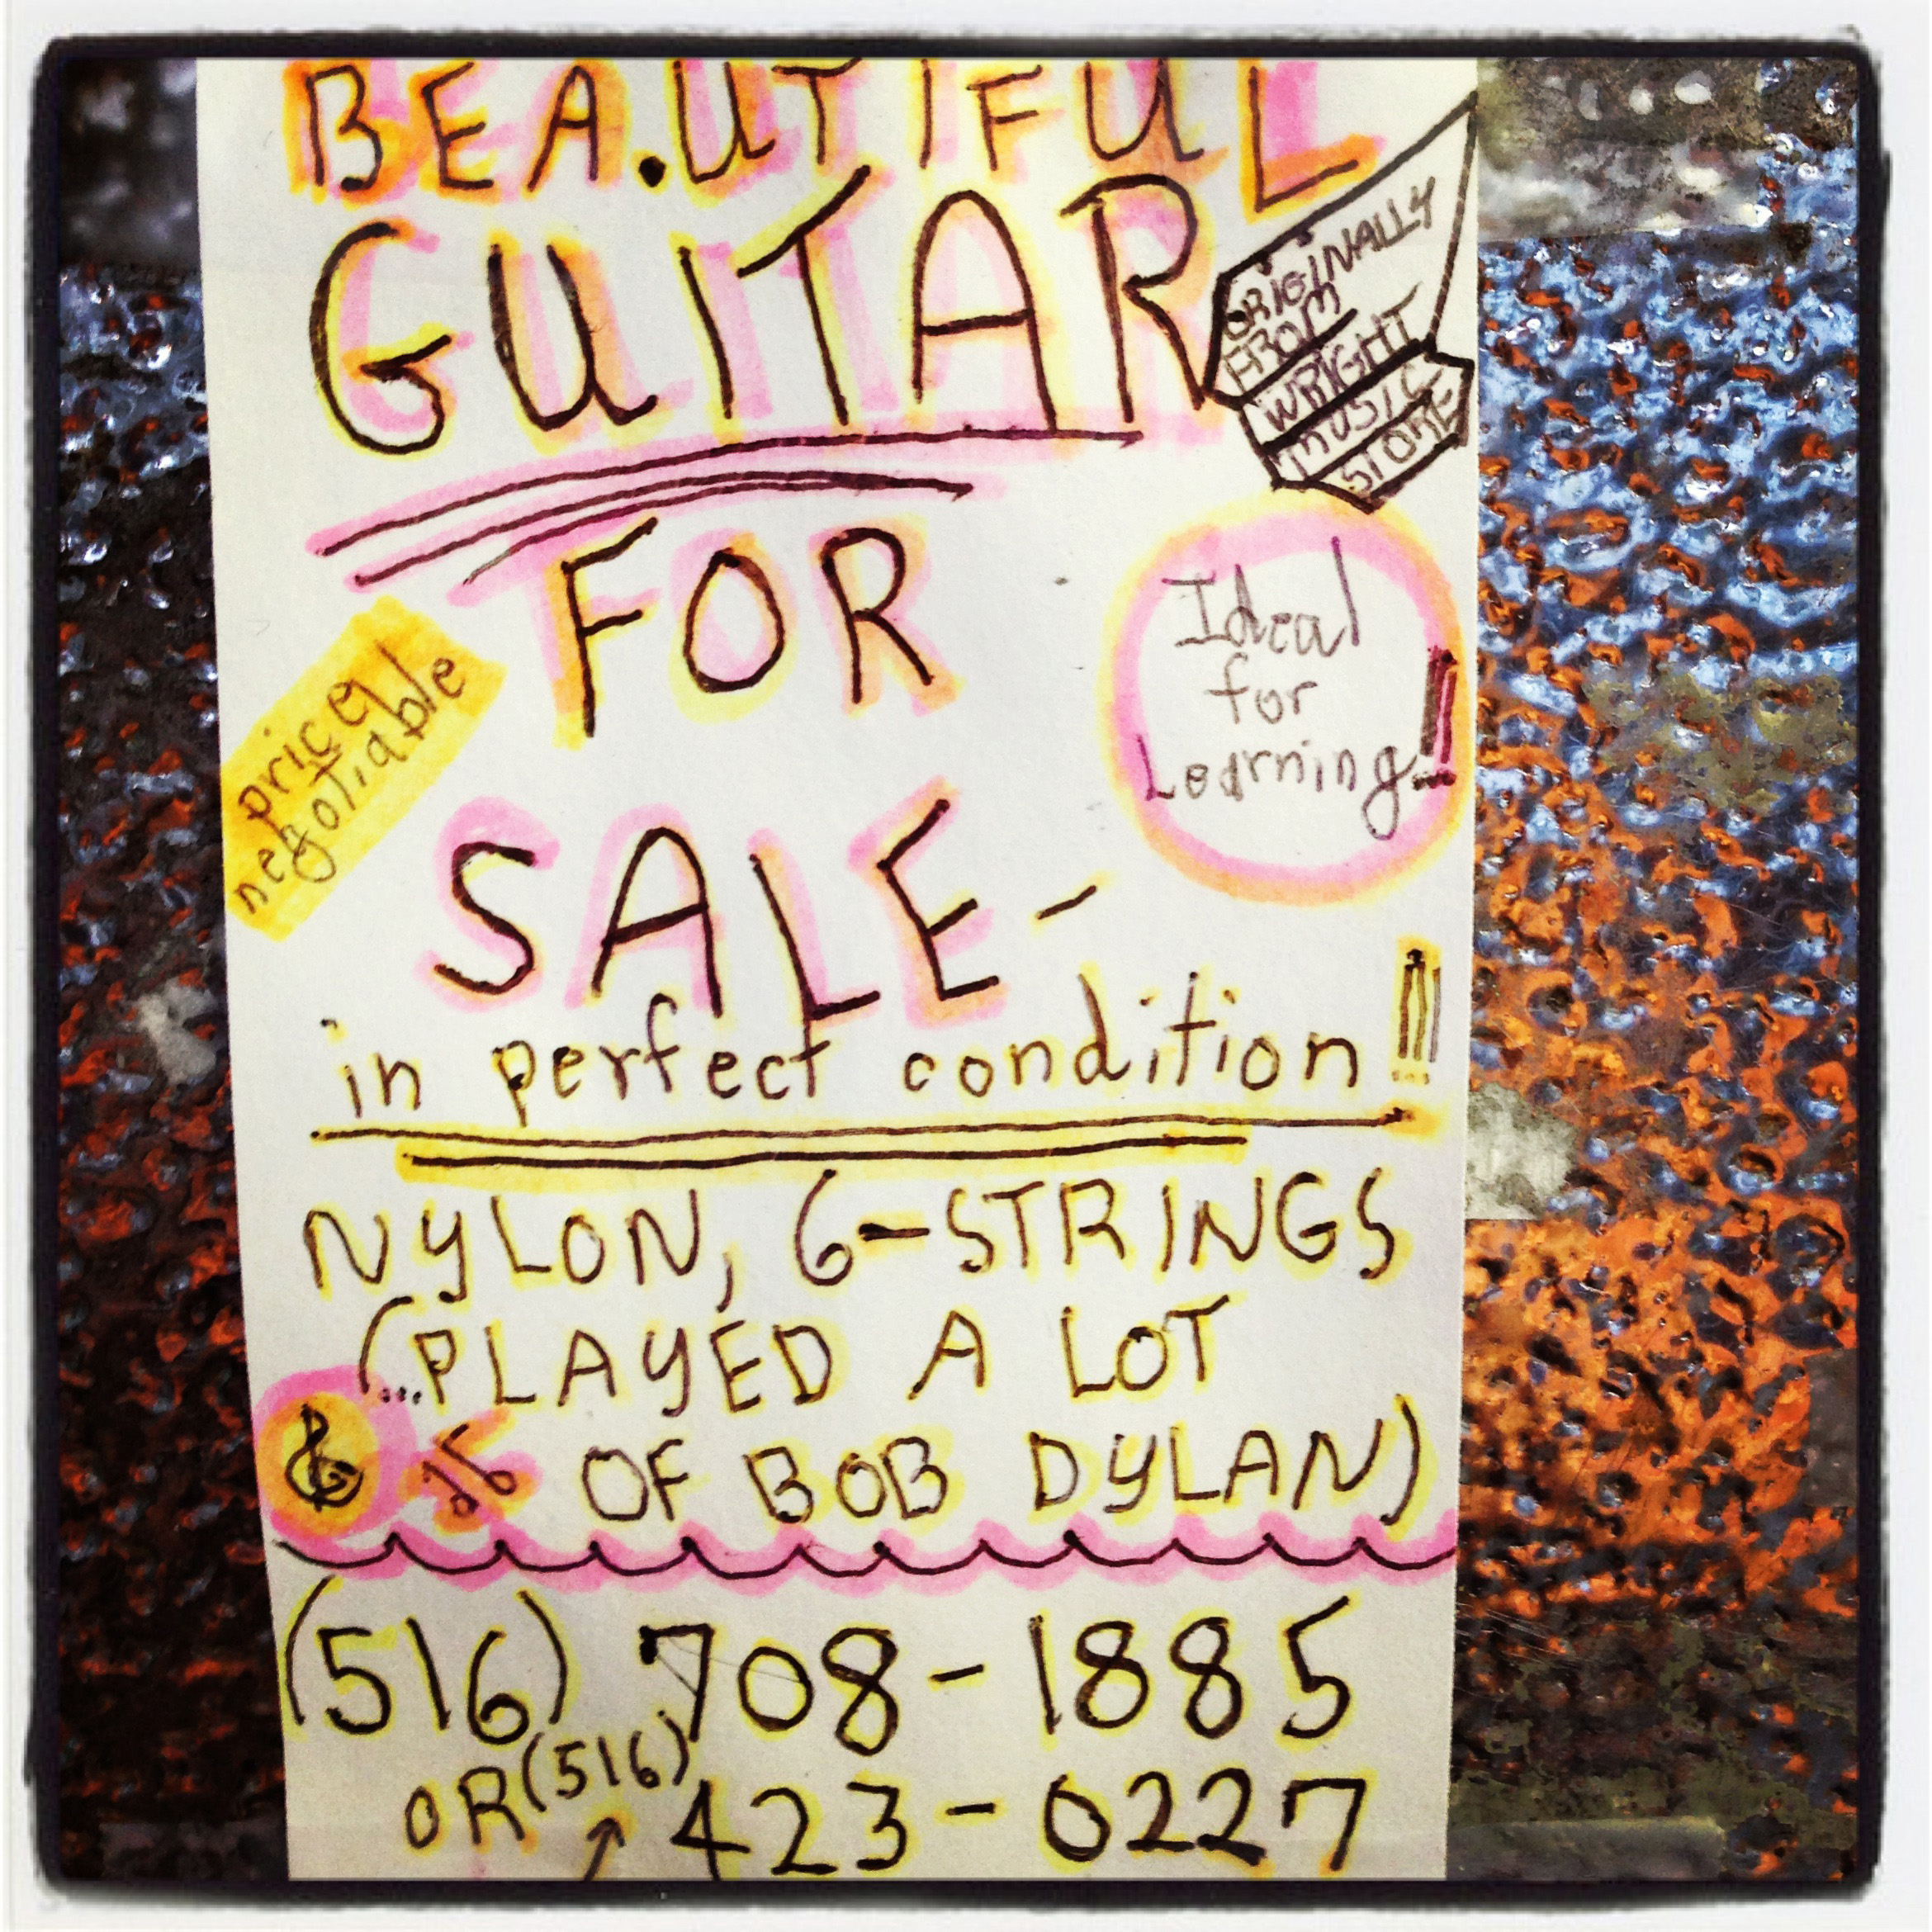 BEA.UTIFUL
GUITAR
ORIGINALLY
FROM
WRIGHT
MUSIC
STORE
FOR
Ideal
for
Learning!!
price
negotiable
SALE-
in perfect condition!!!
NYLON, 6-STRINGS
(...PLAYED A LOT
OF BOB DYLAN)
(516) 708-1885
OR (516) 423-0227